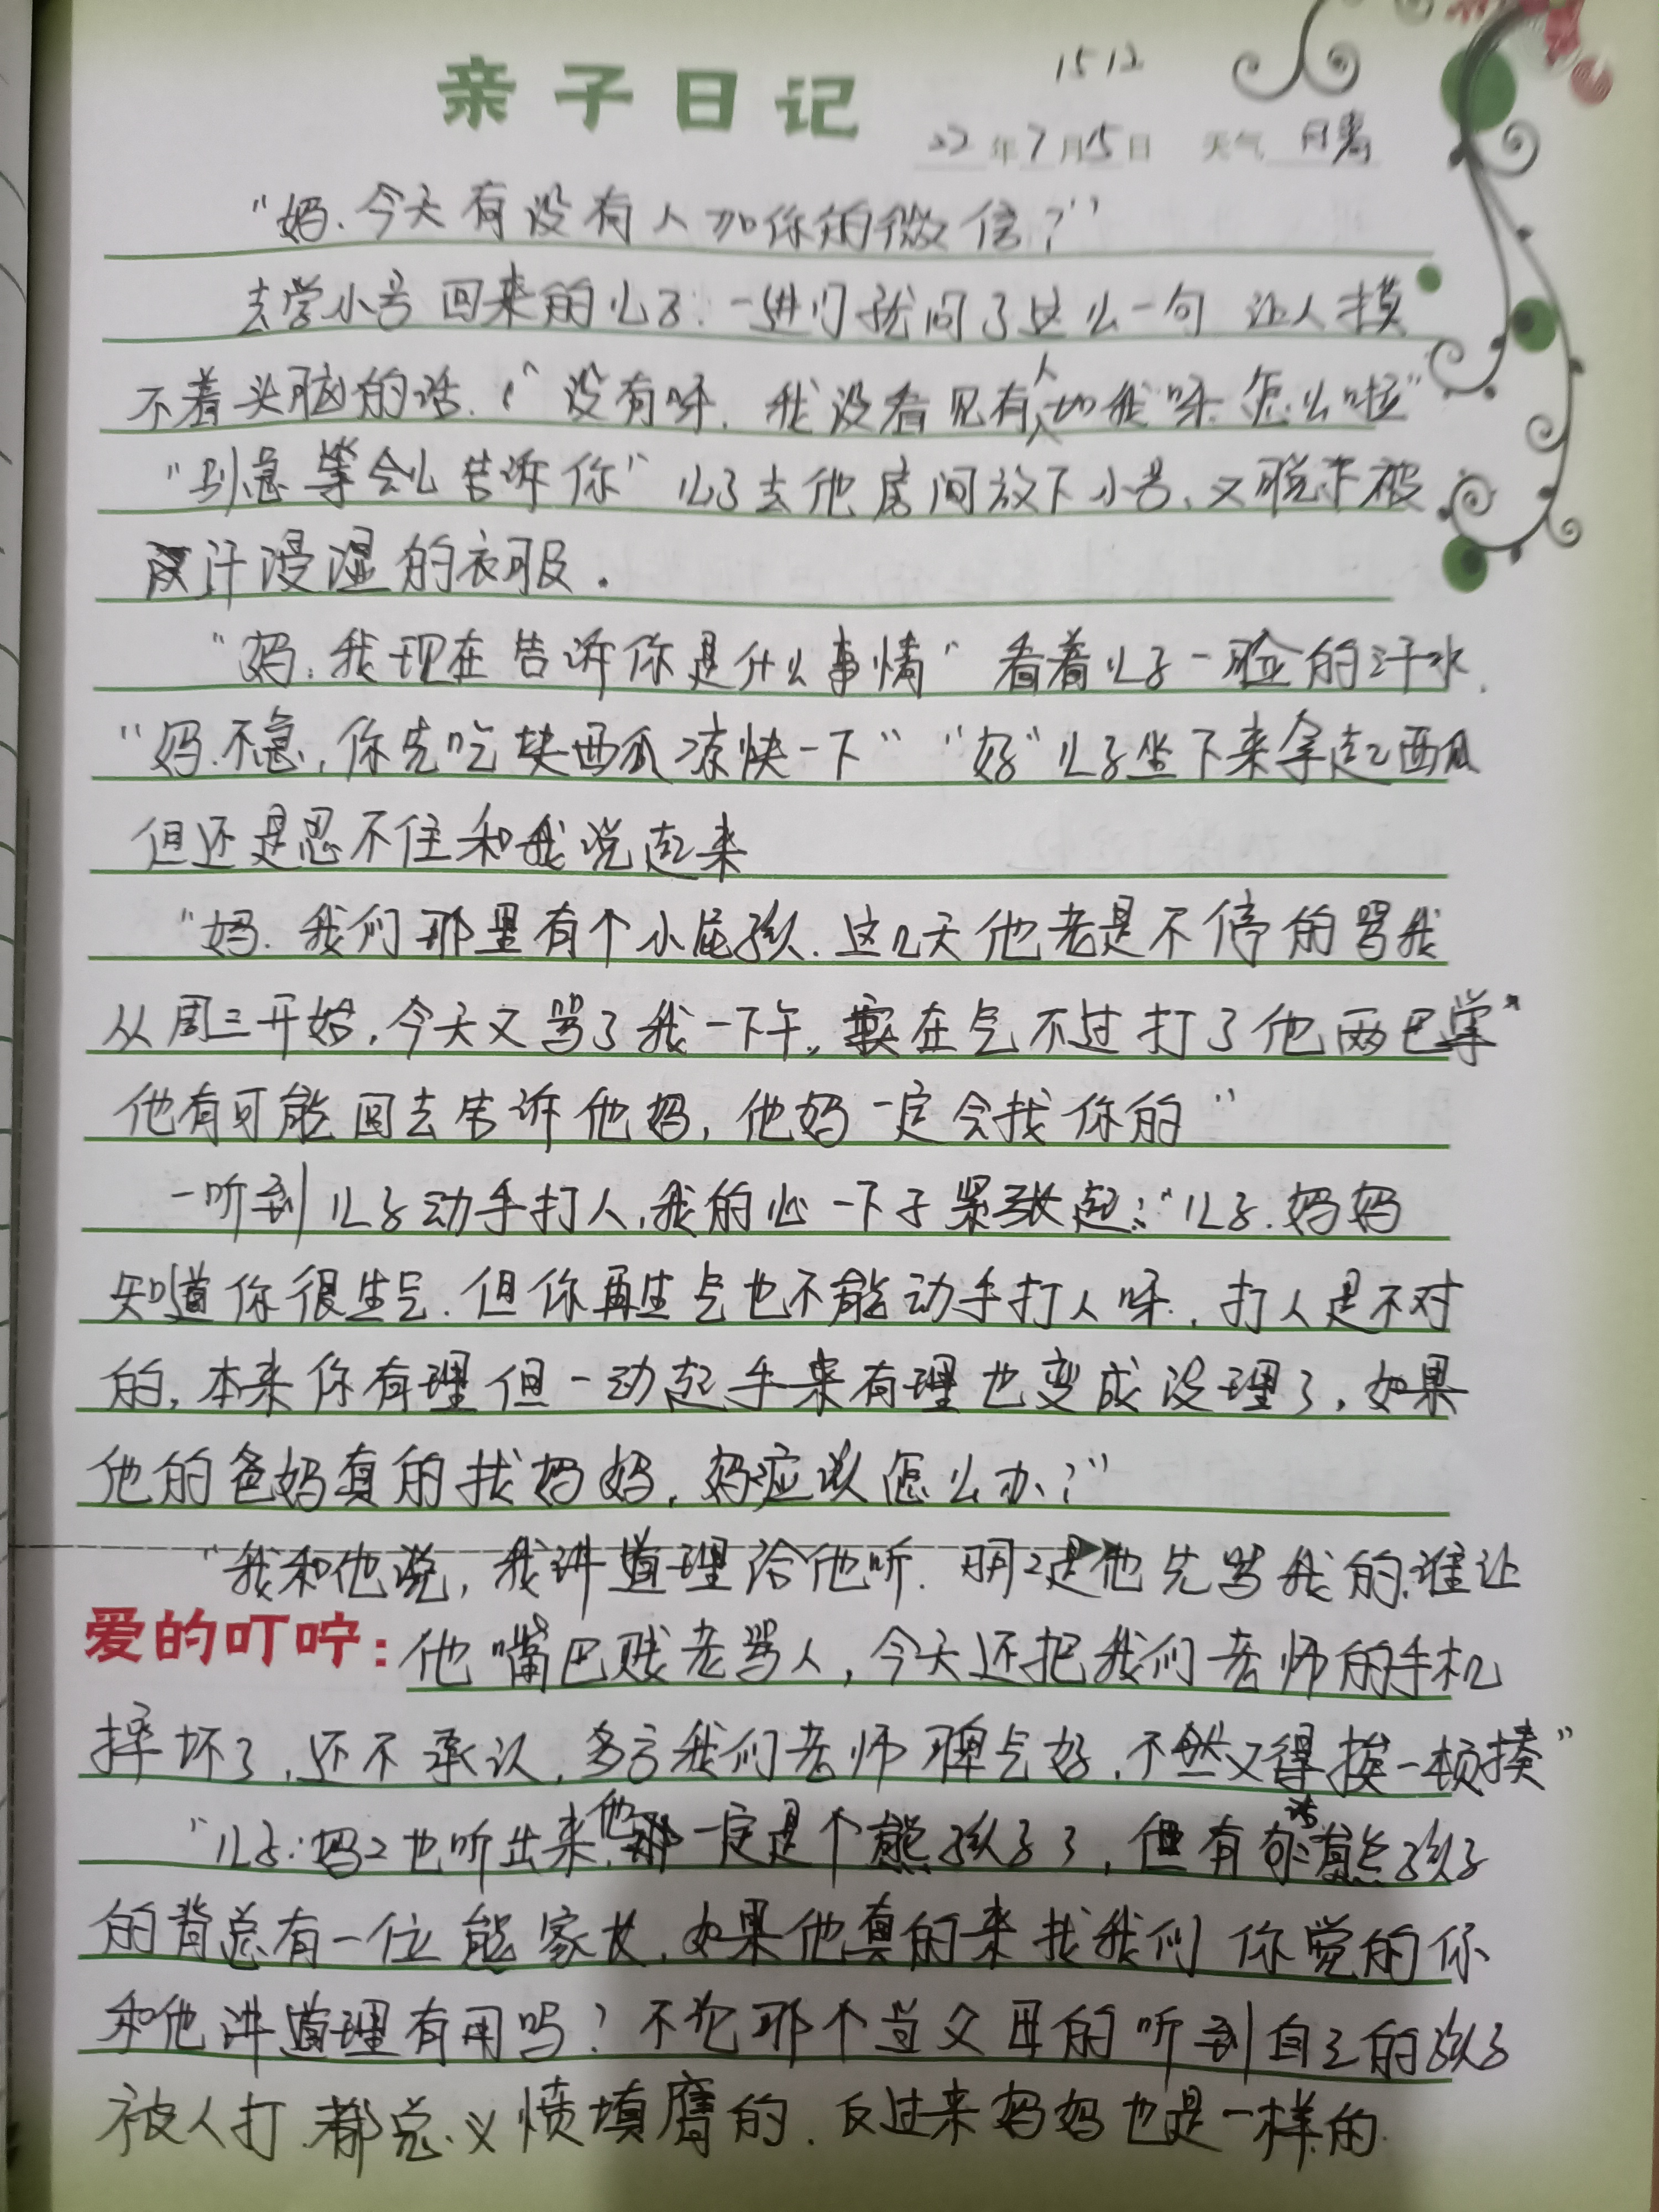 亲子日记
1512
22年7月15日 天气
"妈.今天有没有人加你的微信?"
去学小号回来的儿子.一进门就问了这么一句 让人摸
不着头脑的话."没有呀.我没看见有人加我呀.怎么啦"
"别急等会儿告诉你"儿子去他房间放下小号、又脱下被
汗浸湿的衣服.
"妈.我现在告诉你是什么事情"看着儿子一脸的汗水.
"妈.不急,你先吃块西瓜凉快一下""好"儿子坐下来拿起西瓜
但还是忍不住和我说起来
"妈.我们那里有个小屁孩.这几天他老是不停的骂我
从周三开始,今天又骂了我一下午,实在气不过打了他两巴掌"
他有可能回去告诉他妈,他妈一定会找你的"
一听到儿子动手打人,我的心一下子紧张起:"儿子.妈妈
知道你很生气.但你再生气也不能动手打人呀.,打人是不对
的,本来你有理但一动起手来有理也变成没理了,如果
他的爸妈真的找妈妈,妈应该怎么办?"
"我和他说,我讲道理给他听.明明是他先骂我的.谁让
爱的叮咛:他嘴巴贱老骂人,今天还把我们老师的手机
摔坏了,还不承认,多亏我们老师脾气好,不然又得挨一顿揍"
"儿子:妈妈也听出来,他一定是个熊孩子了,但有句话熊孩子
的背总有一位熊家长,如果他真的来找我们 你觉的你
和他讲道理有用吗?不论那个当父母的听到自己的孩子
被人打.都总义愤填膺的.反过来妈妈也是一样的.